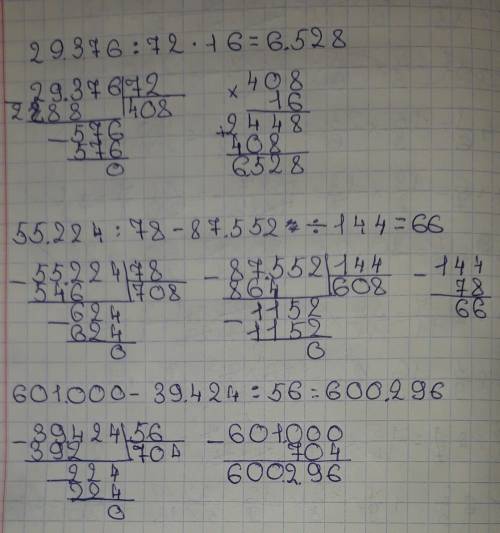 29.376:72·16=6.528
29.376 72 408
288 408 × 16
-576 2448
576 + 408
0 6528
55.224:78-87.552÷144=66
-55.224 78 -87.552 144 -144
546 708 864 608 78
-624 -1152 66
624 1152
0 0
601.000-39.424:56=600.296
-39424 56 -601.000
392 704 704
-224 600.296
224
0